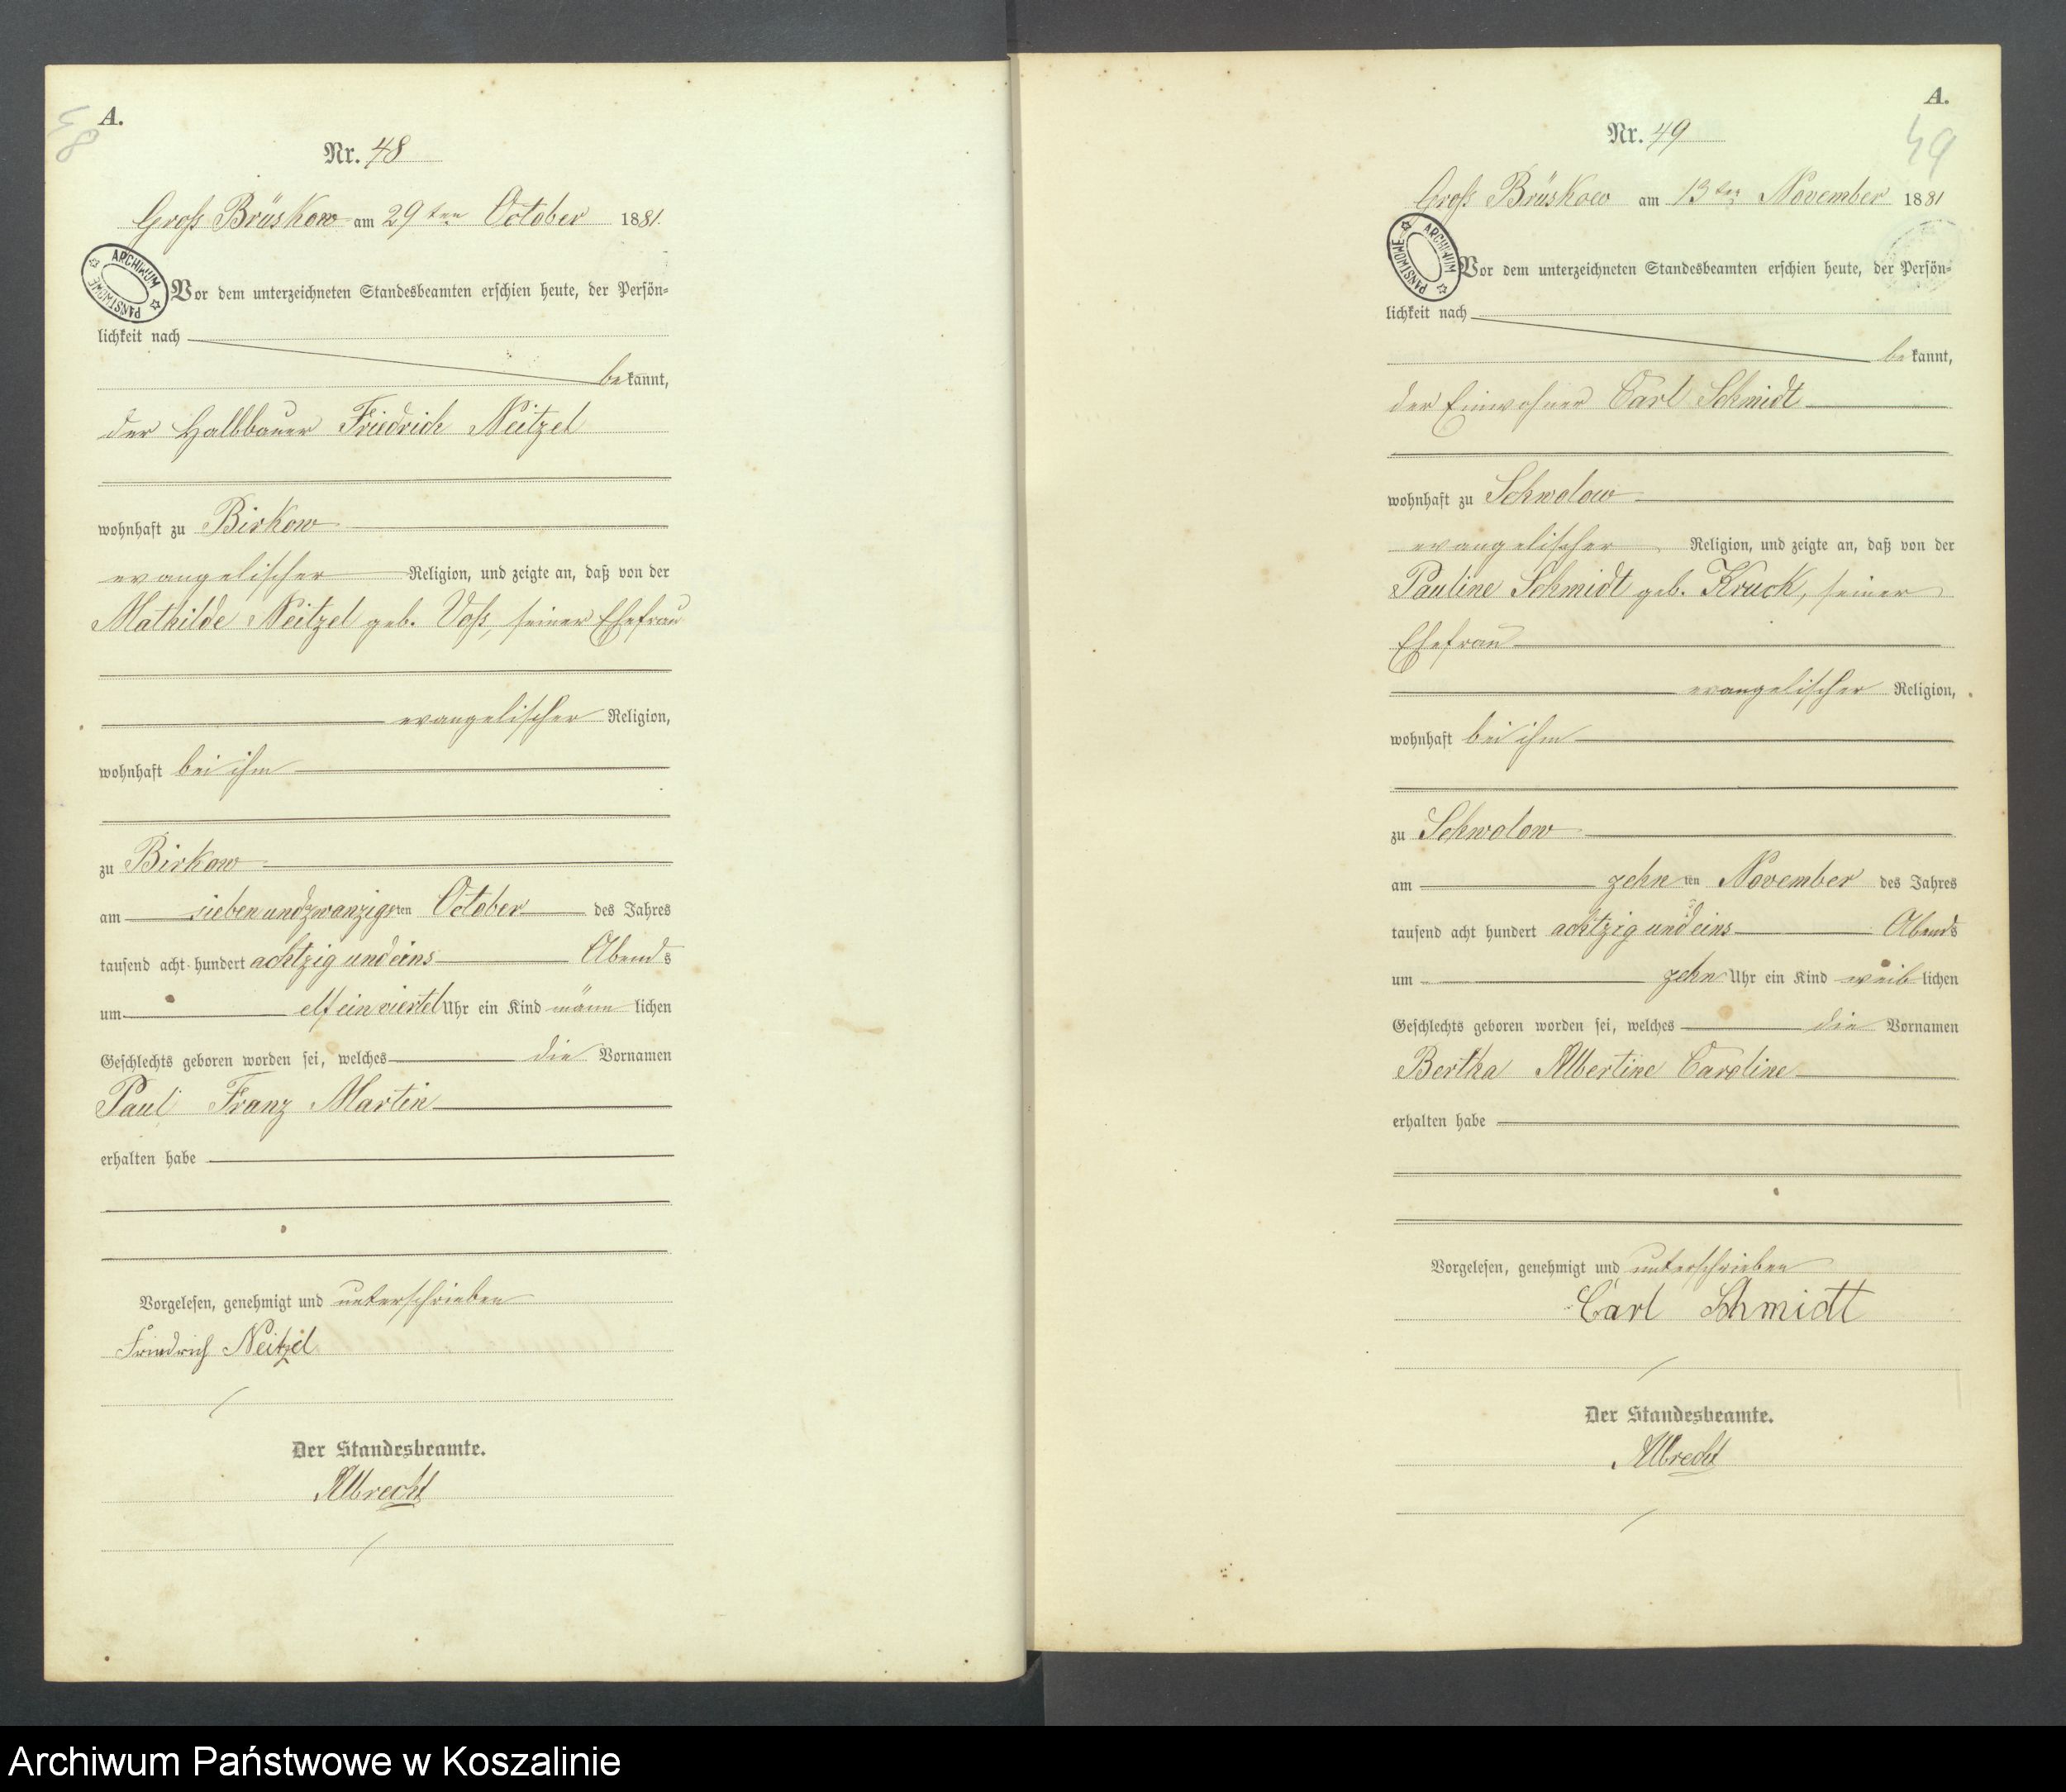 A.
58
Nr. 48
Groß Brüskow am 29ten October 1881.
ARCHIWUM PAŃSTWOWE
Vor dem unterzeichneten Standesbeamten erschien heute, der Persön-
lichkeit nach
bekannt,
der Halbbauer Friedrich Neitzel
wohnhaft zu Birkow
evangelischer Religion, und zeigte an, daß von der
Mathilde Neitzel geb. Voß, seiner Ehefrau
evangelischer Religion,
wohnhaft bei ihm
zu Birkow
am siebenundzwanzigsten October des Jahres
tausend acht hundert achtzig und eins Abends
um elf ein viertel Uhr ein Kind männlichen
Geschlechts geboren worden sei, welches die Vornamen
Paul Franz Martin
erhalten habe
Vorgelesen, genehmigt und unterschrieben
Friedrich Neitzel
Der Standesbeamte.
Albrecht
A.
49
Nr. 49
Groß Brüskow am 13ten November 1881
ARCHIWUM PAŃSTWOWE
Vor dem unterzeichneten Standesbeamten erschien heute, der Persön-
lichkeit nach
bekannt,
der Einwohner Carl Schmidt
wohnhaft zu Schwolow
evangelischer Religion, und zeigte an, daß von der
Pauline Schmidt geb. Kruck, seiner
Ehefrau
evangelischer Religion,
wohnhaft bei ihm
zu Schwolow
am zehnten November des Jahres
tausend acht hundert achtzig und eins Abends
um zehn Uhr ein Kind weiblichen
Geschlechts geboren worden sei, welches die Vornamen
Bertha Albertine Caroline
erhalten habe
Vorgelesen, genehmigt und unterschrieben
Carl Schmidt
Der Standesbeamte.
Albrecht
Archiwum Państwowe w Koszalinie